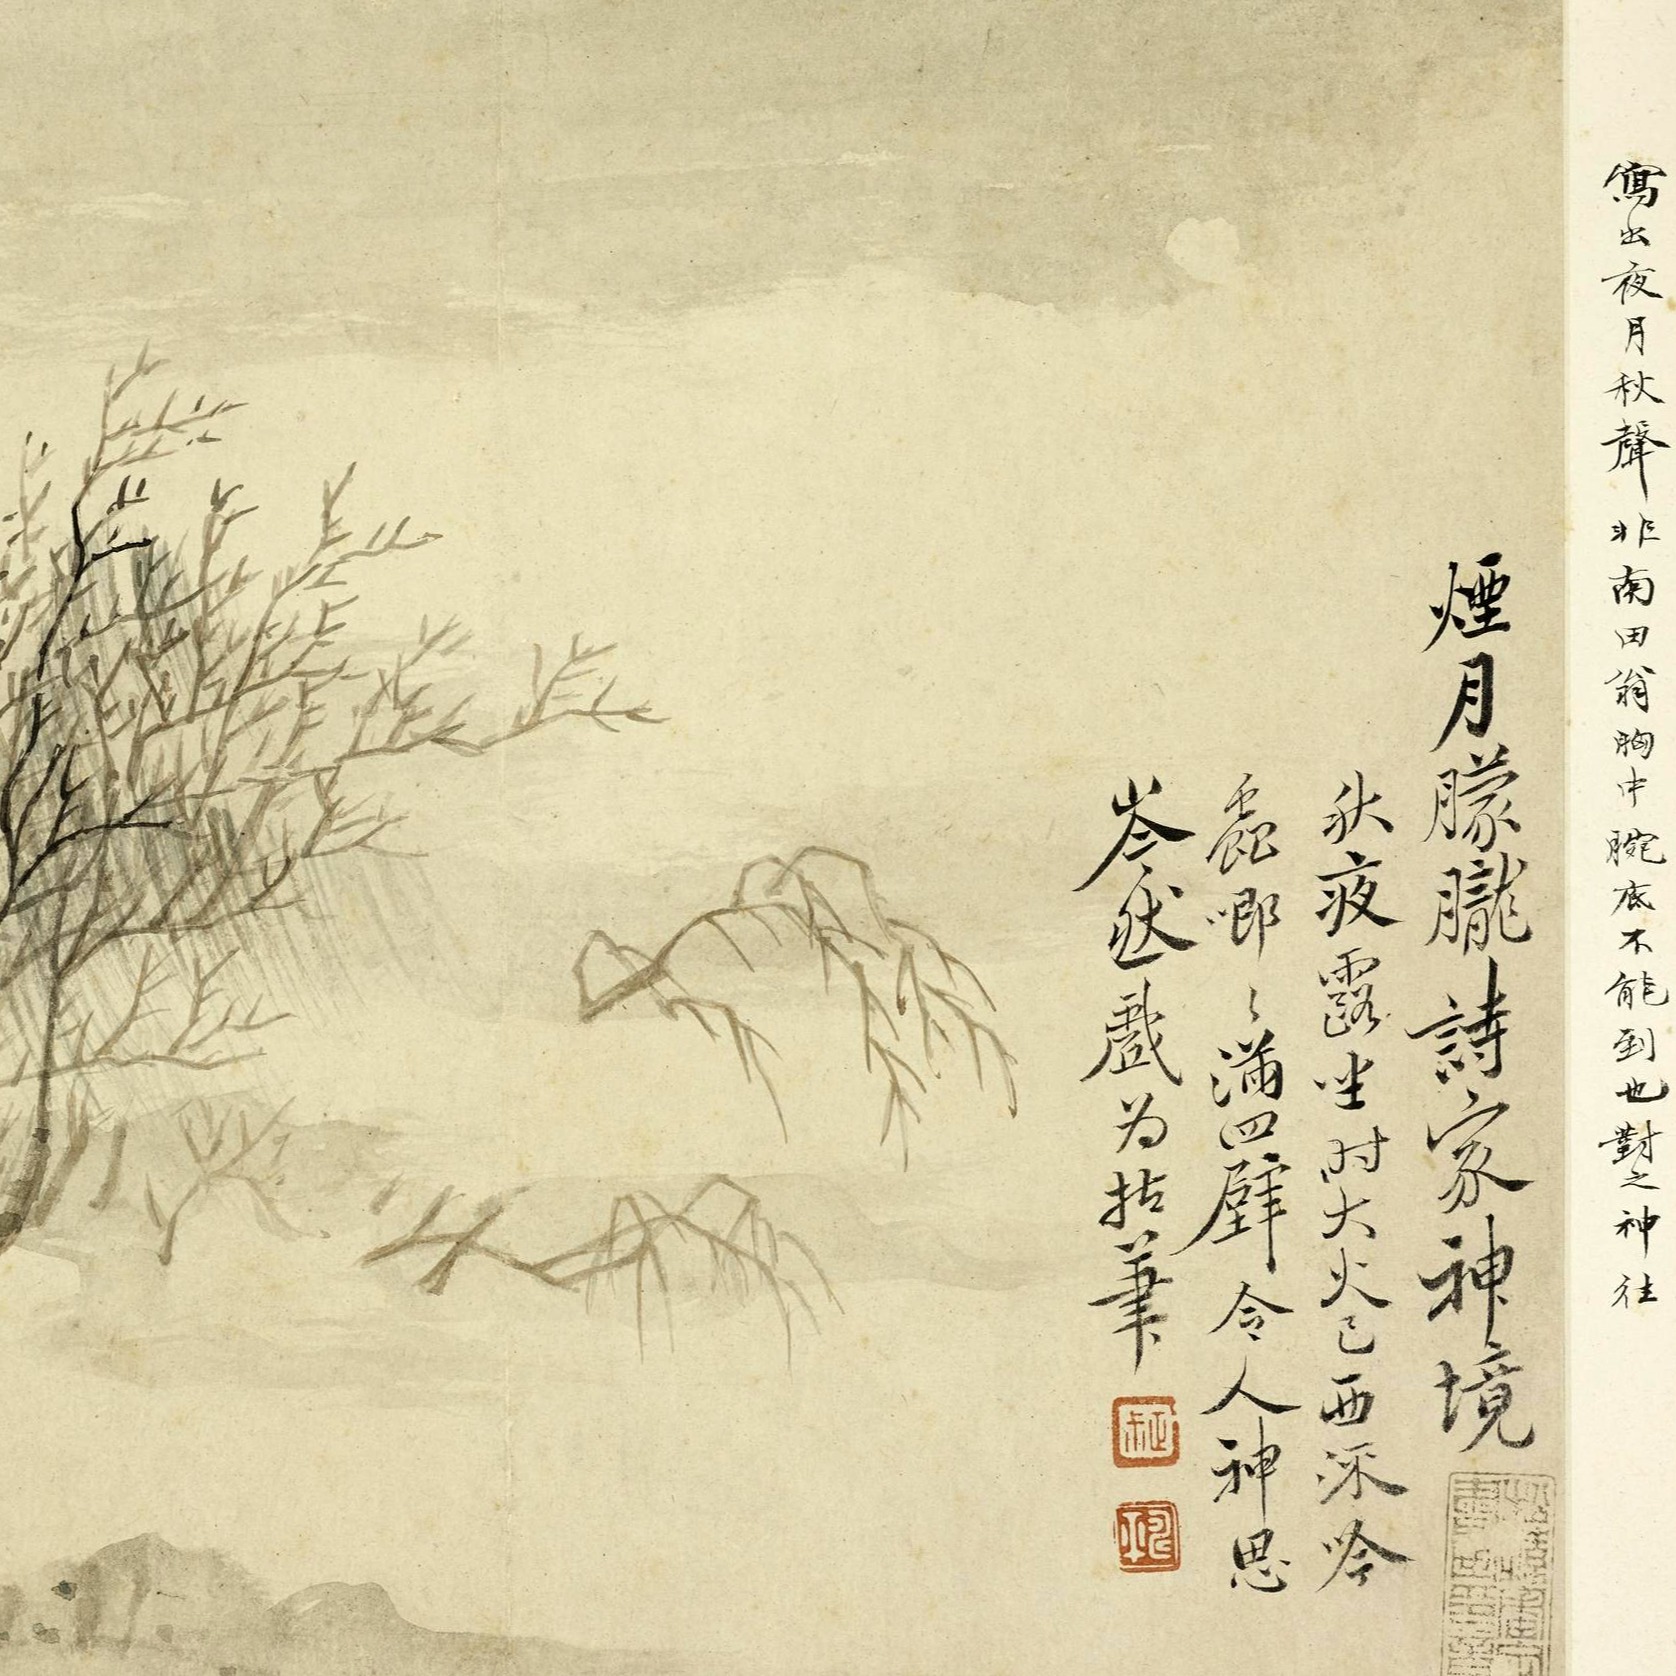 寫出夜月秋聲非南田翁胸中腕底不能到也對之神往
煙月朦朧詩家神境
秋夜露坐时大火已西深吟
蟲唧〻滿四壁令人神思
岑然戲为拈筆